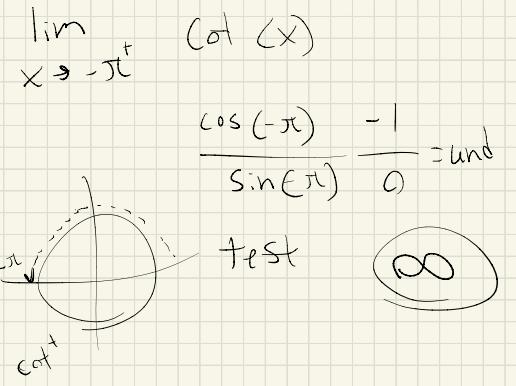 lim cot (x)
x → -π⁺
cos(-π) / sin(-π) -1 / 0 = und
test ∞
-π
cot⁺